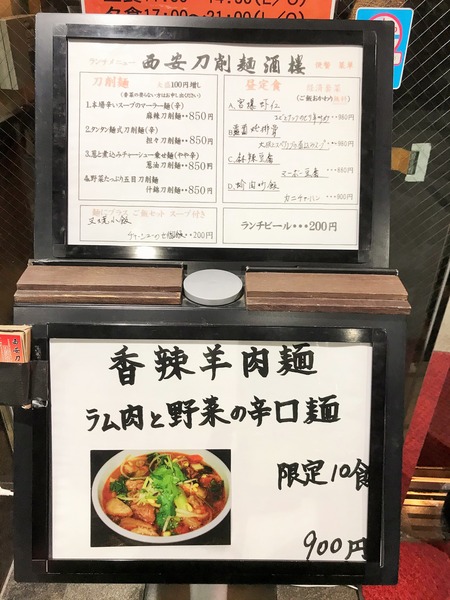 夕食17:00〜21:00(L/O)
ランチメニュー 西安刀削麺酒楼
刀削麺 大盛100円増し
1.本場辛いスープのマーラー麺(辛)
麻辣刀削麺••850円
2.タンタン麺式刀削麺(辛)
担々刀削麺••850円
3.葱と煮込みチャーシュー乗せ麺(やや辛)
葱油刀削麺••850円
4.野菜たっぷり五目刀削麺
什錦刀削麺••850円
麺にプラス ご飯セット スープ付き
叉焼小飯
••200円
昼定食
(ご飯おかわり無料)
A.宮爆虾仁
••980円
B.
••980円
C.麻辣豆腐
マーボー豆腐 ••980円
D.
カニチャーハン ••950円
ランチビール•••200円
香辣羊肉麺
ラム肉と野菜の辛口麺
限定10食
900円